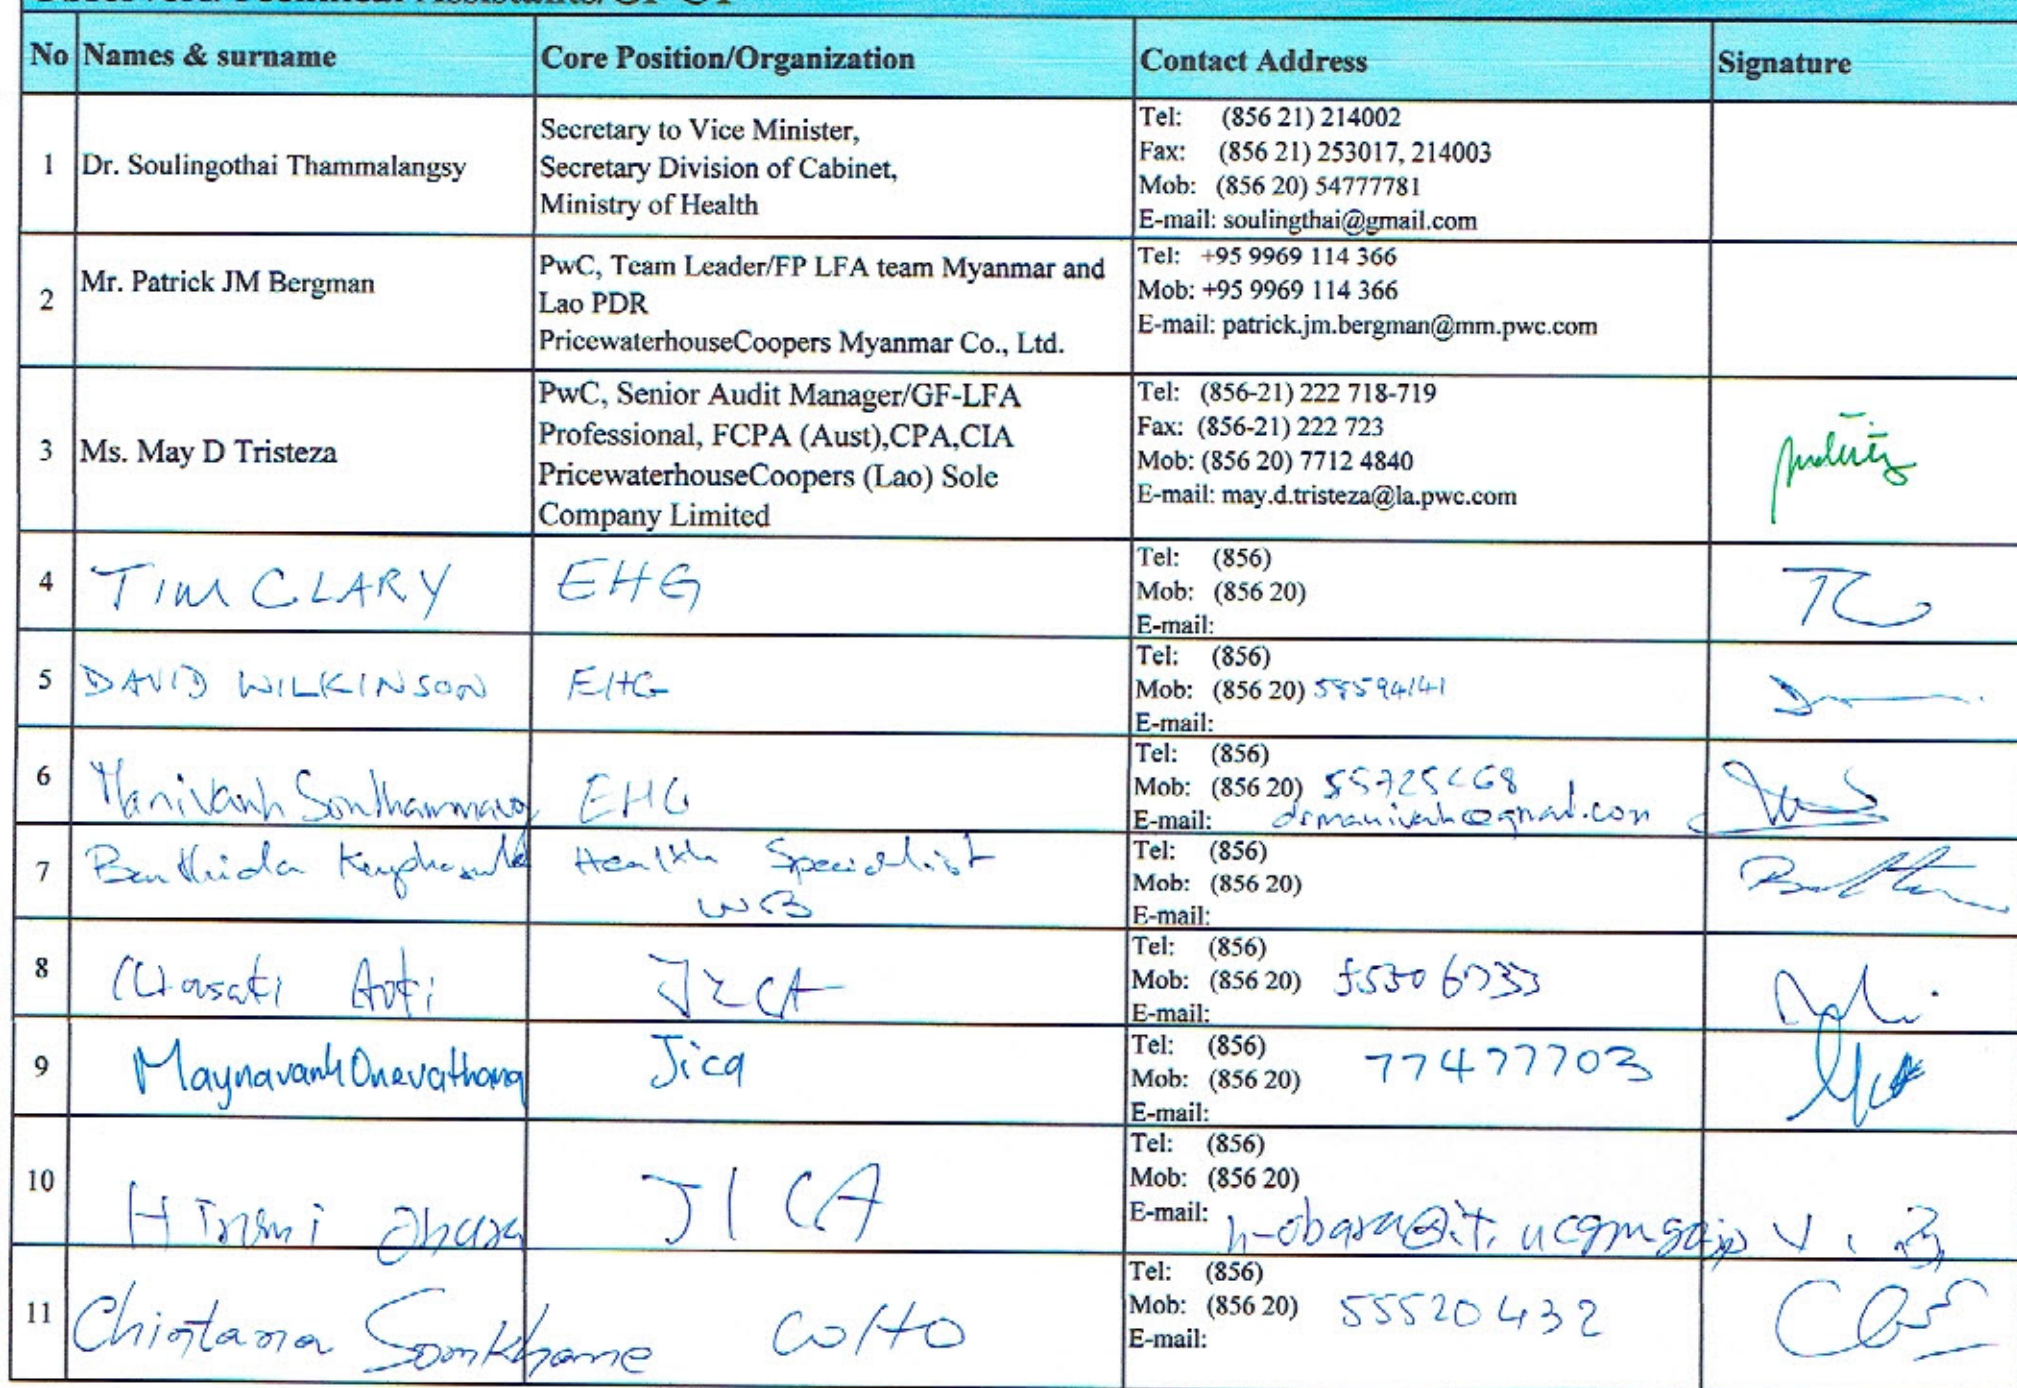 No Names & surname Core Position/Organization Contact Address Signature
1 Dr. Soulingothai Thammalangsy
Secretary to Vice Minister,
Secretary Division of Cabinet,
Ministry of Health
Tel: (856 21) 214002
Fax: (856 21) 253017, 214003
Mob: (856 20) 54777781
E-mail: soulingthai@gmail.com
2 Mr. Patrick JM Bergman
PwC, Team Leader/FP LFA team Myanmar and
Lao PDR
PricewaterhouseCoopers Myanmar Co., Ltd.
Tel: +95 9969 114 366
Mob: +95 9969 114 366
E-mail: patrick.jm.bergman@mm.pwc.com
3 Ms. May D Tristeza
PwC, Senior Audit Manager/GF-LFA
Professional, FCPA (Aust),CPA,CIA
PricewaterhouseCoopers (Lao) Sole
Company Limited
Tel: (856-21) 222 718-719
Fax: (856-21) 222 723
Mob: (856 20) 7712 4840
E-mail: may.d.tristeza@la.pwc.com
4 TIM CLARY EHG
Tel: (856)
Mob: (856 20)
E-mail:
TC
5 DAVID WILKINSON EHG
Tel: (856)
Mob: (856 20) 58594141
E-mail:
6 Manivanh EHG
Tel: (856)
Mob: (856 20)
E-mail:
7 Health Specialist
WB
Tel: (856)
Mob: (856 20)
E-mail:
8 JICA
Tel: (856)
Mob: (856 20)
E-mail:
9 Maynavanh Onevathana Jica
Tel: (856)
Mob: (856 20) 77477703
E-mail:
10 Obara JICA
Tel: (856)
Mob: (856 20)
E-mail:
11 Chintana Somkhane
Tel: (856)
Mob: (856 20) 55520432
E-mail: